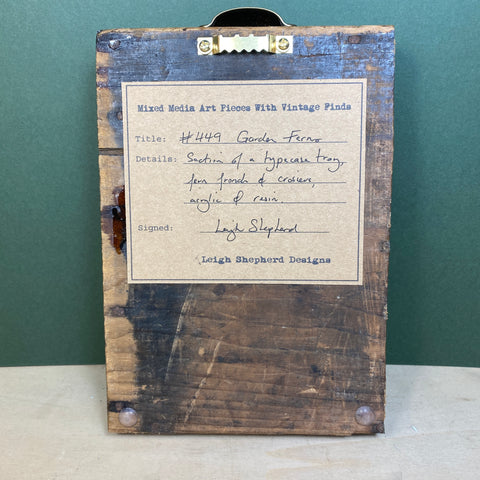 Mixed Media Art Pieces With Vintage Finds
Title: #449 Garden Ferns
Details: Section of a typecase tray,
fern fronds & croziers,
acrylic & resin.
Signed: Leigh Shepherd
Leigh Shepherd Designs